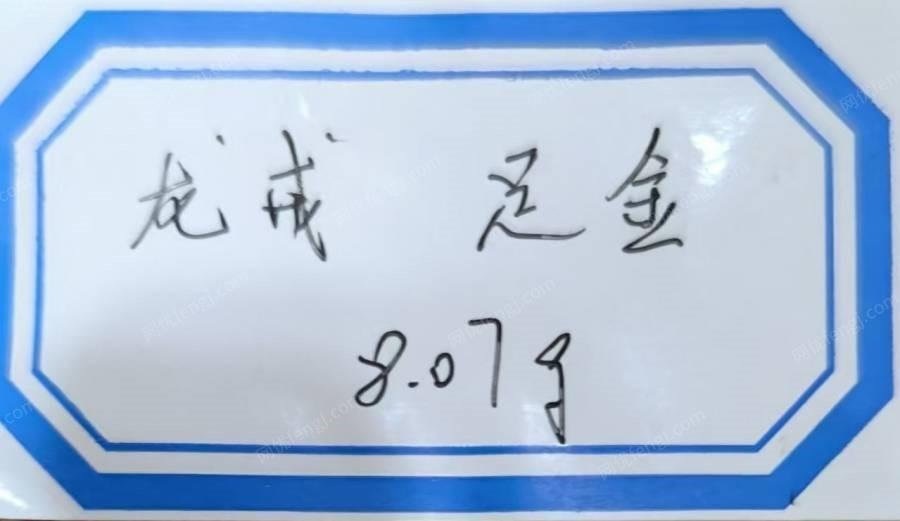 龙戒 足金
8.07g